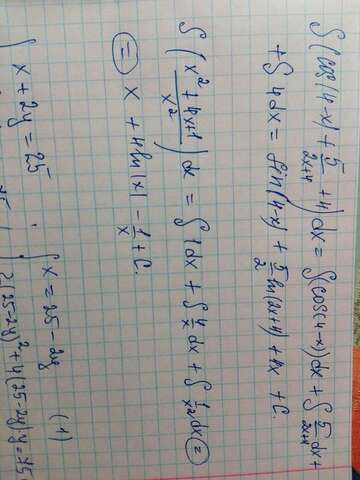 ∫ (cos(4-x) + 5/(2x+4) + 4) dx = ∫(cos(4-x))dx + ∫ 5/(2x+4) dx +
+ ∫ 4dx = sin(4-x) + 5/2 ln(2x+4) + 4x + C.
∫ ((x² + 4x+1)/x²) dx = ∫ 1dx + ∫ 4/x dx + ∫ 1/x² dx =
= x + 4ln|x| - 1/x + C.
{ x + 2y = 25 { x = 25 - 2y (1)
2(25-2y)² + 4(25-2y)·y = 25